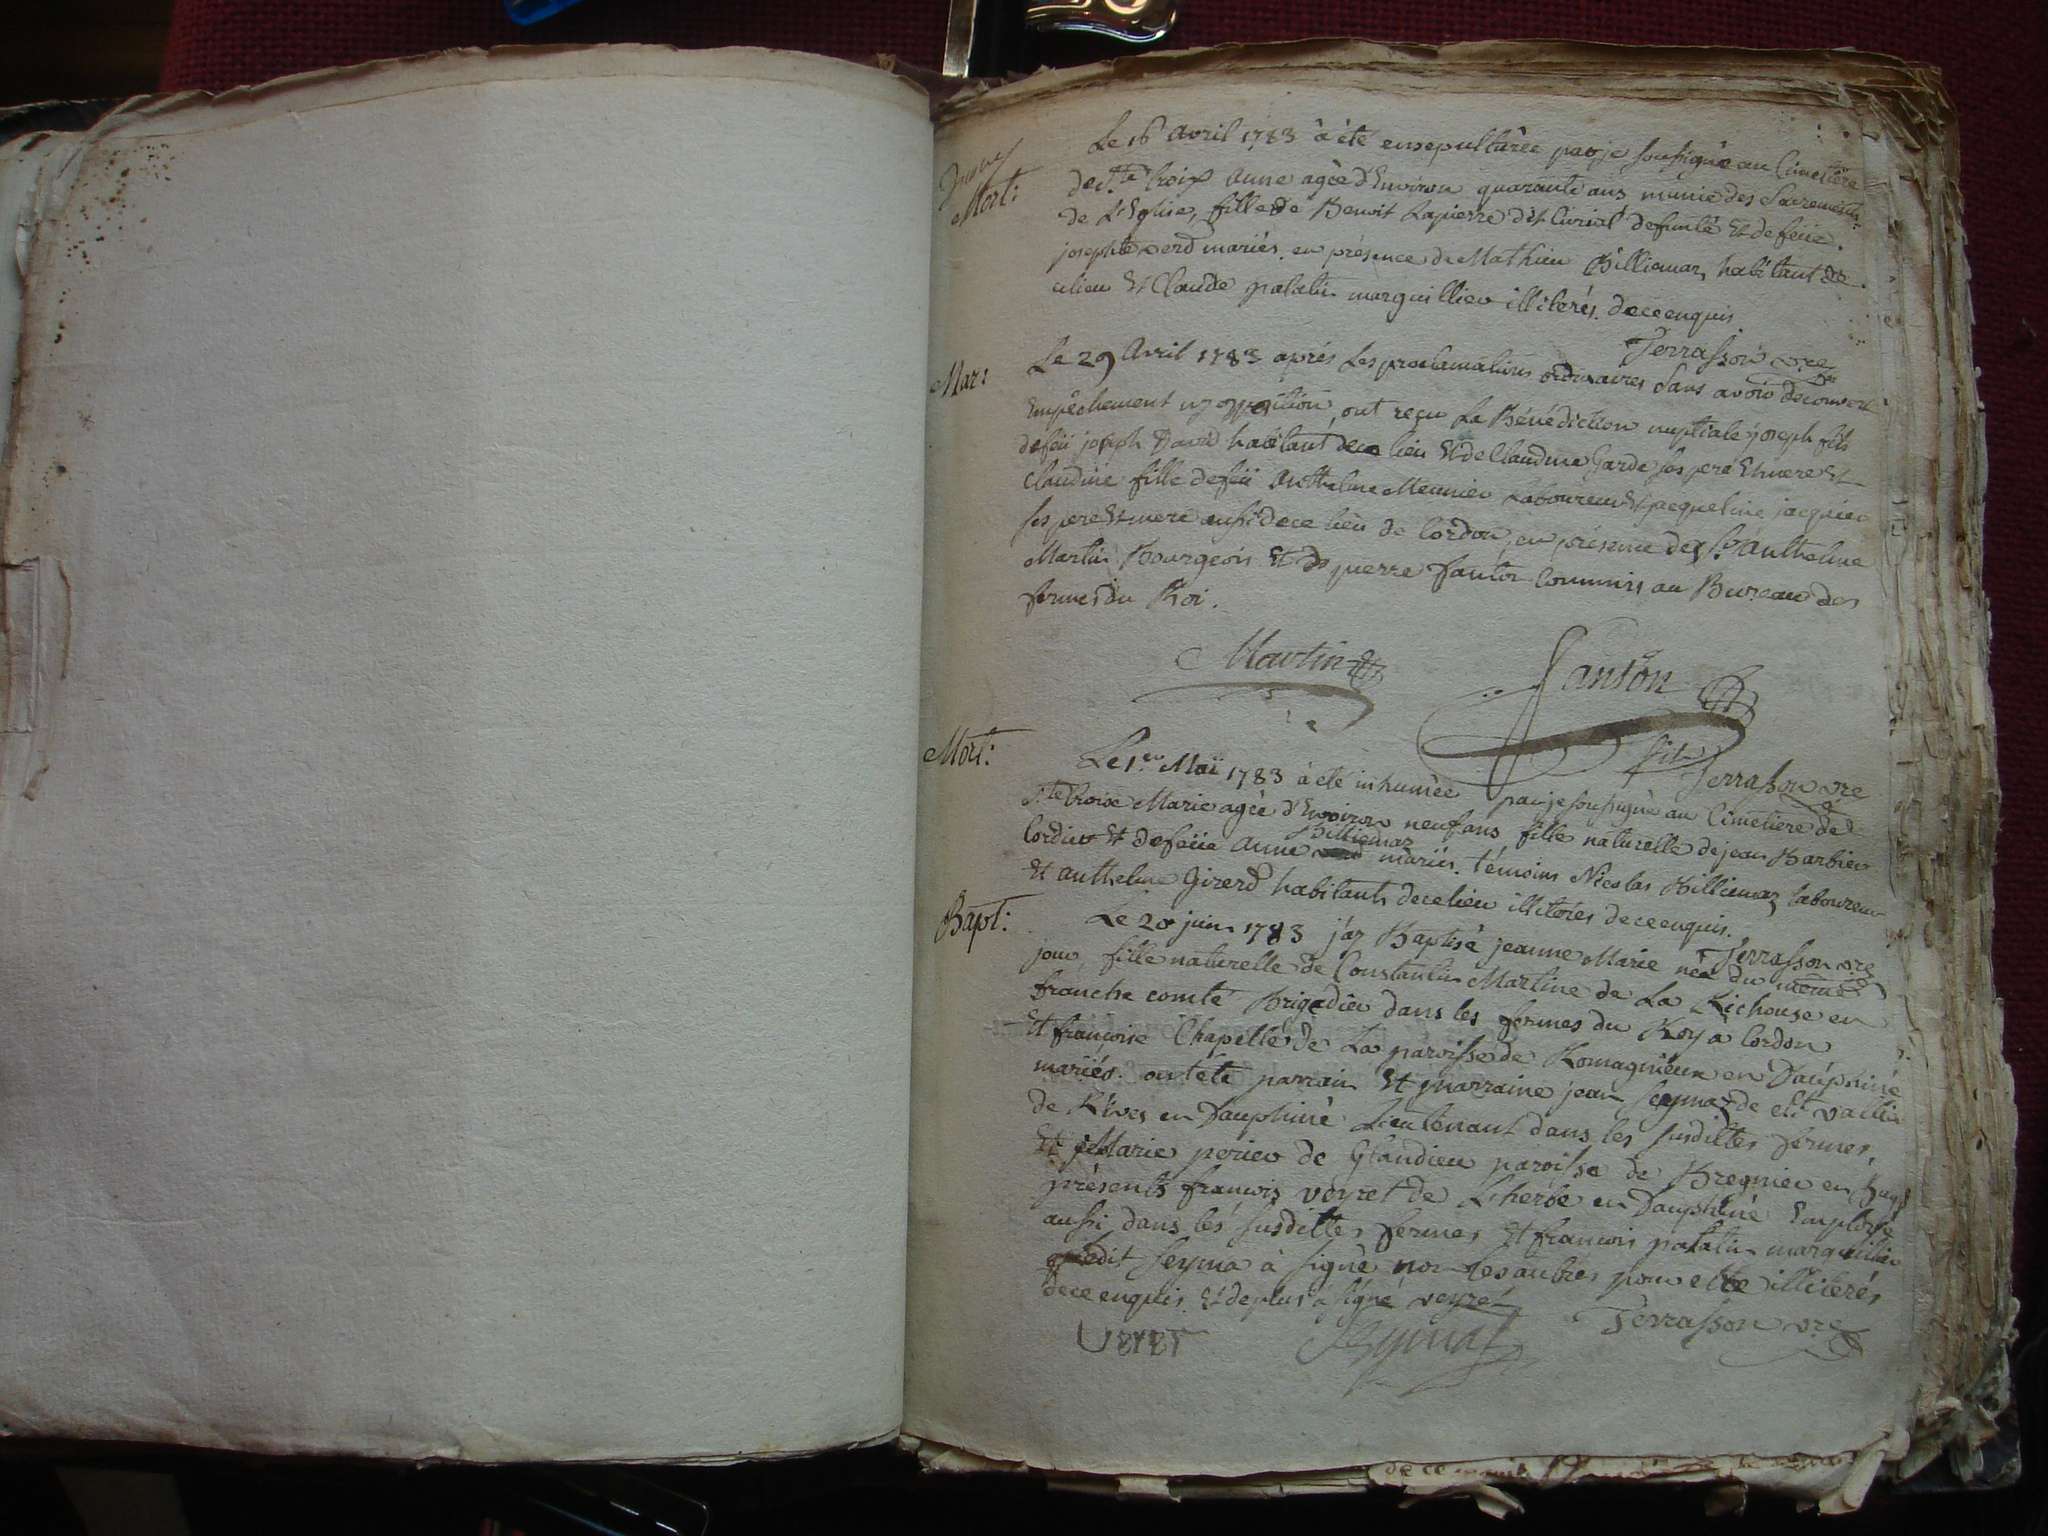 Mort:
Le 16 avril 1783 à été ensepulturée par je soussigné au Cimetiere
de Ste Croix Anne agée d'Environ quarante ans, munie des Sacrements
de L'Eglise, fille de Benoit Lapierre dit Curial defunte Et de feüe
josephte mariés. en présence de Mathieu Billiemaz habitant de
ce lieu Et Claude palatin marguillier illiterés. de ce enquis.
Terrasson vre
Mar:
Le 29 Avril 1783 aprés Les proclamations ordinaires Sans avoir decouvert
Empêchement ny opposition, ont reçu La Bénédiction nuptiale joseph fils
de feü joseph David habitant de ce lieu Et de Claudine Garde ses pere Et mere Et
Claudine fille de feü Anthelme Meunier Laboureur Et jacqueline jacquier
ses pere Et mere aussi de ce lieu de Cordon, en présence de Sr Anthelme
Martin Bourgeois Et de pierre Santon Commis au Bureau des
fermes du Roi.
Martin
Santon
Terrasson vre
Mort:
Le 1er Maï 1783 à été inhumée par je soussigné au Cimetiere de
Ste Croix Marie agée d'Environ neuf ans fille naturelle de jean Barbier
Billiemaz
Cordier Et de feüe Anne mariés. témoins Nicolas Billiemaz Laboureur
Et Anthelme Girerd habitants de ce lieu illiterés de ce enquis.
Terrasson vre
Bapt:
Le 20 juin 1783 j'ay Baptisé jeanne Marie née du même
jour, fille naturelle de Constantin Martine de La Richouse en
franche comté Brigadier dans les fermes du Roy à Cordon
Et françoise Chapelle de La paroisse de Romagnieux en Dauphiné
mariés. ont été parrain Et marraine jean Seyma de
de Rives en Dauphiné Lieutenant dans les susdittes fermes,
Et Marie perier de Glandieu paroisse de Bregnier en Bugey
présents françois veyret de L'herbe en Dauphiné Employé
aussi dans les susdittes fermes Et françois palatin marguillier
Seyma à signé non les autres pour etre illiterés
de ce enquis. Et de plus a signé veyret
Terrasson vre
Veyret
Seyma